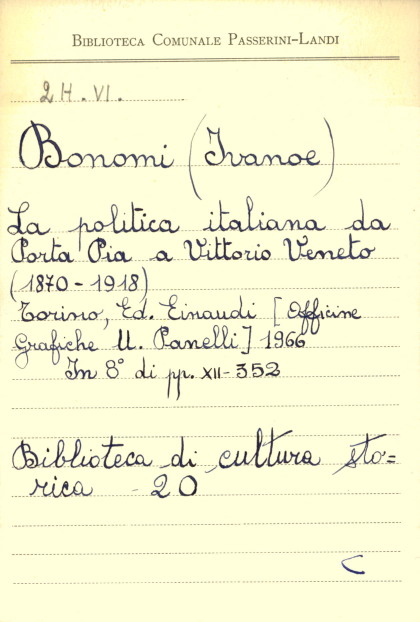 BIBLIOTECA COMUNALE PASSERINI-LANDI
2H.VI.
Bonomi (Ivanoe)
La politica italiana da
Porta Pia a Vittorio Veneto
(1870-1918)
Torino, Ed. Einaudi [Officine
Grafiche U. Panelli] 1966
In 8° di pp. XII-352
Biblioteca di cultura sto=
rica - 20